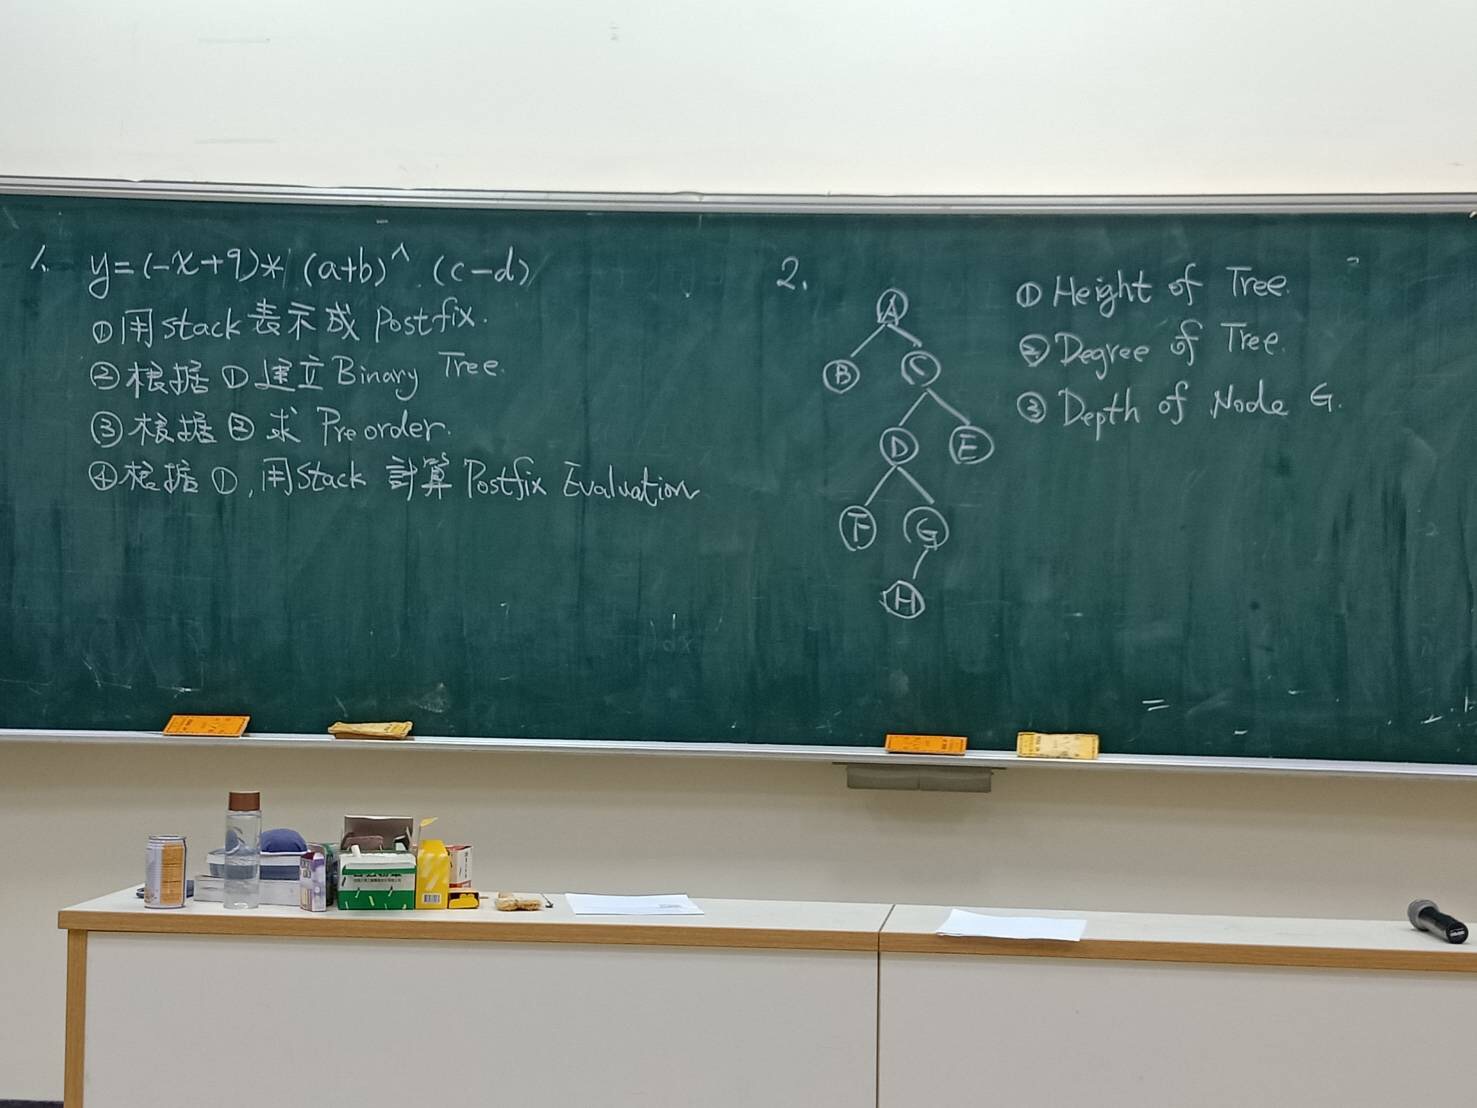 1. y=(-x+9)* (a+b)^ (c-d)
①用stack表示成 Postfix.
②根據①建立Binary Tree.
③根據②求 Preorder.
④根據①,用Stack 計算 Postfix Evaluation
2.
A
B C
D E
F G
H
① Height of Tree.
② Degree of Tree.
③ Depth of Node G.